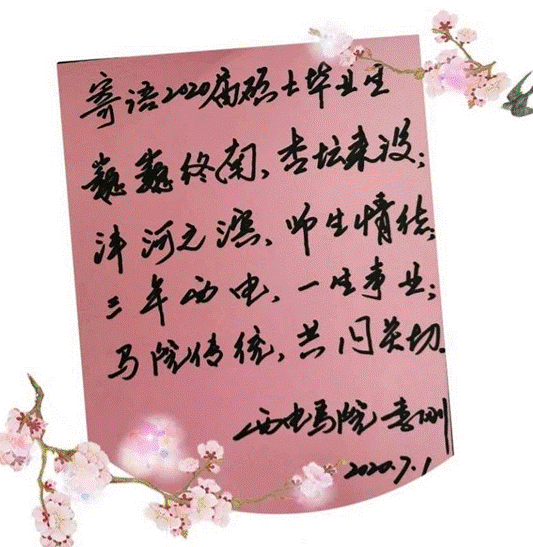 寄语2020届硕士毕业生
巍巍终南、杏坛来设;
沣河之滨、师生情结;
三年西电、一生事业;
马院传统、共同关切.
西电马院 李刚
2020.7.1